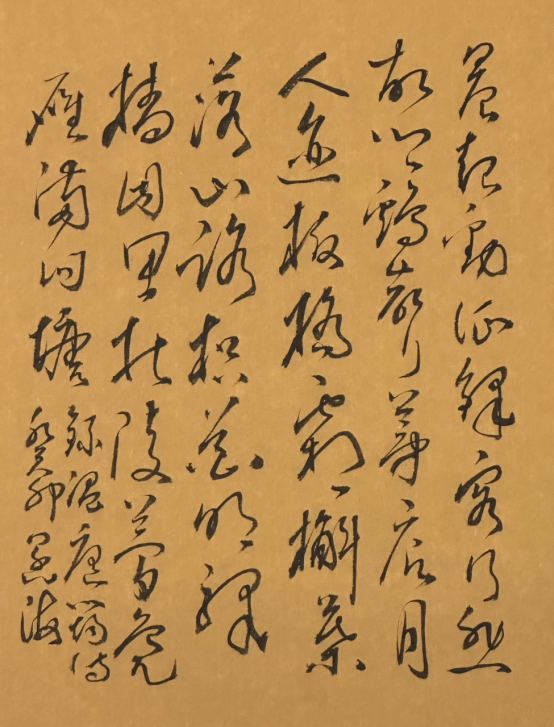 晨起動征鐸客行悲
故鄉鷄聲茅店月
人迹板橋霜槲葉
落山路枳花明驛
墻因思杜陵夢鳧
雁滿回塘
錄温庭筠詩
癸卯海